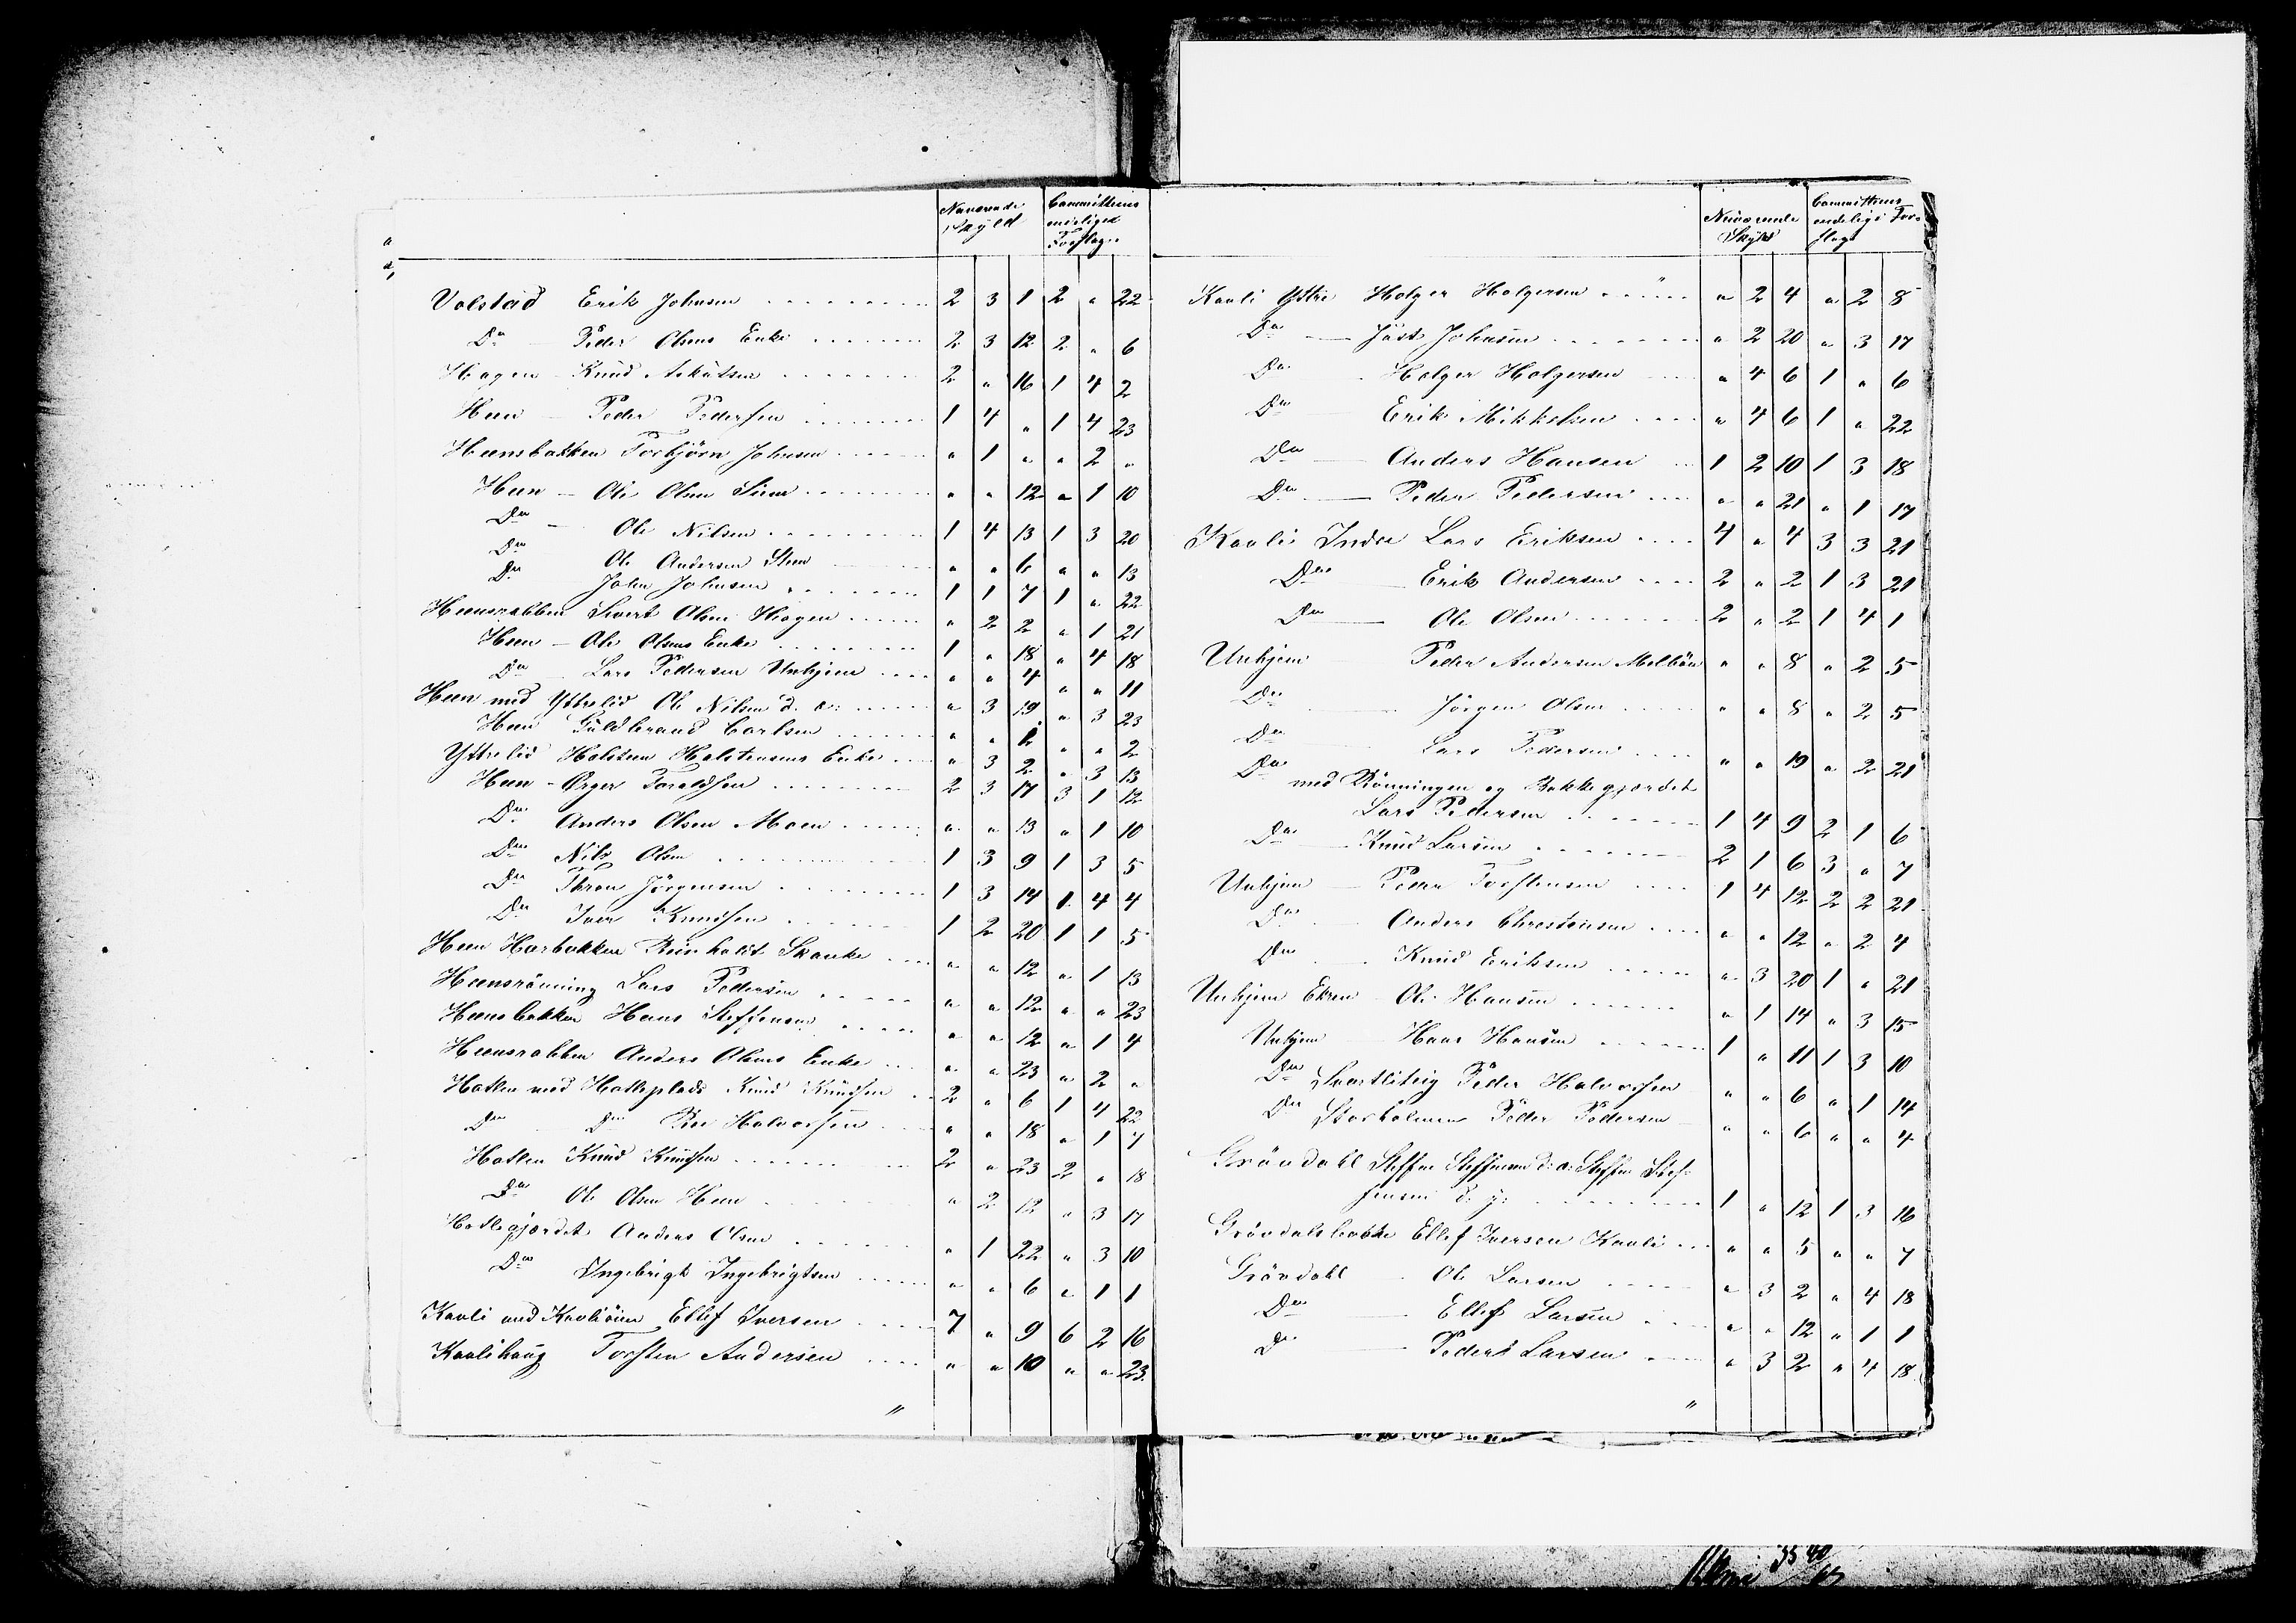 Nuværende Skyld Committeens endelige Forslag
Volstad Erik Johnsen 2 3 1 2 " 22
Do Peder Olsens Enke 2 3 12 2 " 6
Hagen Knud Aslaksen 2 " 16 1 4 2
Heen Peder Pedersen 1 4 " 1 4 23
Heensbakken Torbjörn Johnsen " 1 " " 2 "
Heen Ole Olsen " " 12 " 1 10
Do Ole Nilsen 1 4 13 1 3 20
Do Ole Andersen Steen " " 6 " " 13
Do John Johnsen 1 1 7 1 " 22
Heensrabben Sivert Olsen Hagen " 2 2 " 1 21
Heen Ole Olsens Enke 1 " 18 " 4 18
Do Lars Pedersen Unhjem " " 4 " " 11
Heen med Yttrelid Ole Nilsen d. æ: " 3 19 " 3 23
Heen Guldbrand Carlsen " " 2 " " 2
Yttrelid Halsteen Halsteensens Enke " 3 2 " 3 13
Heen Ørger Toraldsen 2 3 17 3 1 12
Do Anders Olsen Moen " " 13 " 1 10
Do Nils Olsen 1 3 9 1 3 5
Do Thron Jörgensen 1 3 14 1 4 4
Do Iver Knudsen 1 2 20 1 1 5
Heen Harbakken Reinholdt Skanke " " 12 " 1 13
Heensrönning Lars Pedersen " " 12 " " 23
Heensbakken Hans Steffensen " " 12 " 1 4
Heensrabben Anders Olsens Enke " " 23 " 2 "
Hatlen med Hatleplads Knud Knudsen 2 " 6 1 4 22
Do Do Halvorsen " " 18 " 1 7
Hatlen Knud Knudsen 2 " 23 2 " 18
Do Ole Olsen Heen " 2 12 " 3 17
Hatlegjærdet Anders Olsen " 1 22 " 3 10
Do Ingebrigt Ingebrigtsen " " 6 " 1 1
Kavli med Kavliöien Ellef Iversen 7 " 9 6 2 16
Kavlihaug Torsten Andersen " " 10 " " 23
"
Nuværende Skyld Committeens endelige Forslag
Kavli Yttre Holger Holgersen " 2 4 " 2 8
Do Jöst Johnsen " 2 20 " 3 17
Do Holger Holgersen " 4 6 1 " 6
Do Erik Mikkelsen " 4 6 1 " 22
Do Anders Hansen 1 2 10 1 3 18
Do Peder Pedersen " " 21 " 1 17
Kavli Indre Lars Eriksen 4 " 4 3 3 21
Do Erik Andersen 2 " 2 1 3 21
Do Ole Olsen 2 " 2 1 4 1
Unhjem Peder Andersen Melbön " " 8 " 2 5
Do Jörgen Olsen " " 8 " 2 5
Do Lars Pedersen " " 19 " 2 21
Do med Rönningen og Bakkegjærdet
Lars Pedersen 1 4 9 2 1 6
Do Knud Larsen 2 1 6 3 " 7
Unhjem Peder Torstensen 1 4 12 2 2 21
Do Anders Christensen " " 12 " 2 4
Do Knud Eriksen " 3 20 1 " 21
Unhjem Ekren Ole Hansen " 1 14 " 3 15
Unhjem Hans Hansen 1 " 11 1 3 10
Do Svartliteig Peder Halvorsen " " 6 " 1 14
Do Storholmen Peder Pedersen " " 6 " " 4
Grövdahl Steffen Steffensen d: æ: Steffen Stef-
fensen d. y: 1 " 12 1 3 16
Grövdalsbakke Ellef Iversen Kavli " " 5 " " 7
Grövdahl Ole Larsen " 3 2 " 4 18
Do Ellef Larsen " " 12 " 1 1
Do Peder Larsen " 3 2 " 4 18
"